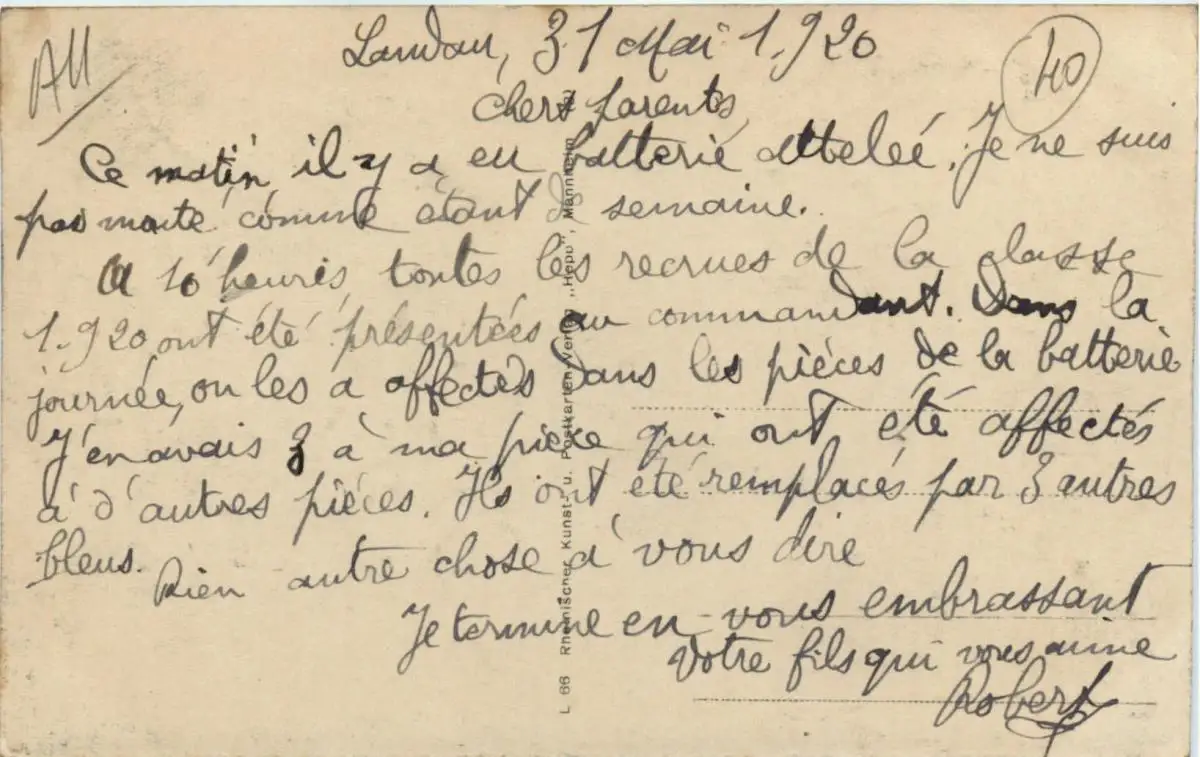 All
40
Landau, 31 Mai 1.920
Chers parents
Ce matin il y a eu batterie attelée. Je ne suis
pas monté comme étant de semaine.
A 10 heures toutes les recrues de la classe
1.920 ont été présentées au commandant. Dans la
journée, on les a affectés dans les pièces de la batterie
J'en avais 3 à ma pièce qui ont été affectés
à d'autres pièces. Ils ont été remplacés par 3 autres
bleus.
Rien autre chose à vous dire
Je termine en vous embrassant
Votre fils qui vous aime
Robert
L 66 Rheinischer Kunst- u. Postkarten-Verlag „Hepp", Mannheim